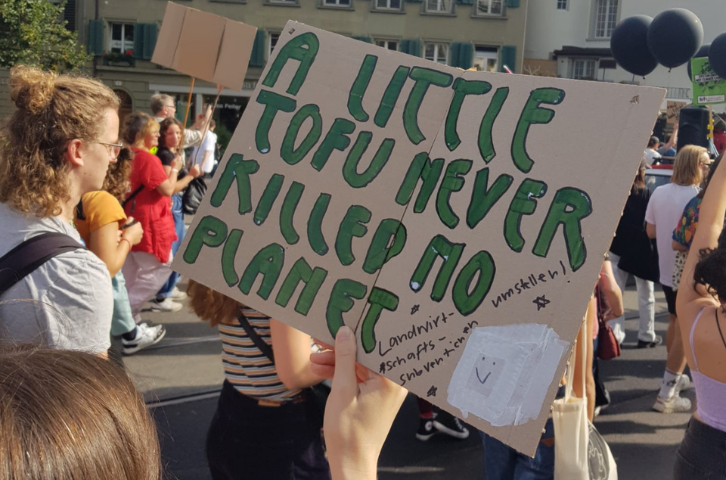 A LITTLE
TOFU NEVER
KILLED NO
PLANET
Landwirt-
schafts-
subventionen
umstellen!